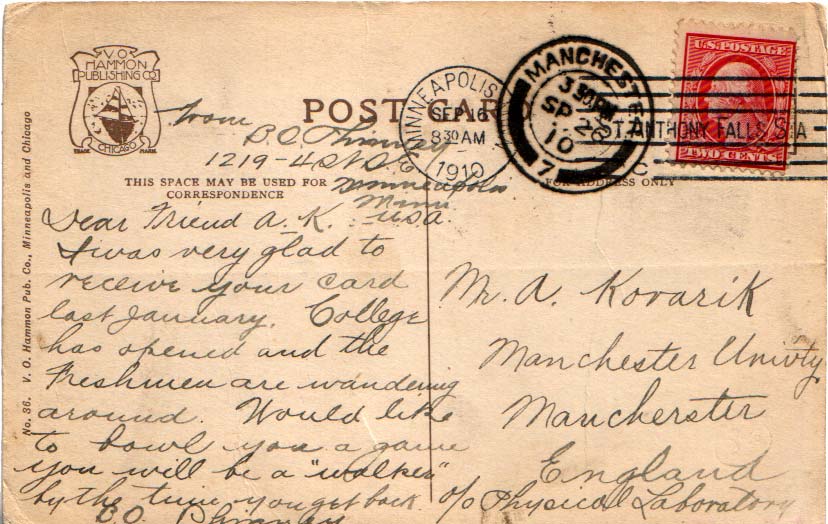 V.O.
HAMMON
PUBLISHING CO.
TRADE MARK
CHICAGO
No. 36. V. O. Hammon Pub. Co., Minneapolis and Chicago
POST CARD
From
B.C.
1219-4 St. S.E.
Minneapolis
Minn
USA.
THIS SPACE MAY BE USED FOR
CORRESPONDENCE
FOR ADDRESS ONLY
MINNEAPOLIS
SEP 16
8 30 AM
1910
MANCHESTER
3 30 PM
SP 26
10
7
ST. ANTHONY FALLS STA
C
U.S. POSTAGE
TWO CENTS
Dear Friend A. K. :-
I was very glad to
receive your card
last January. College
has opened and the
Freshmen are wandering
around. Would like
to bowl you a game
you will be a "walker"
by the time you get back
Mr. A. Kovarik
Manchester Univty
Mancherster
England
c/o Physical Laboratory